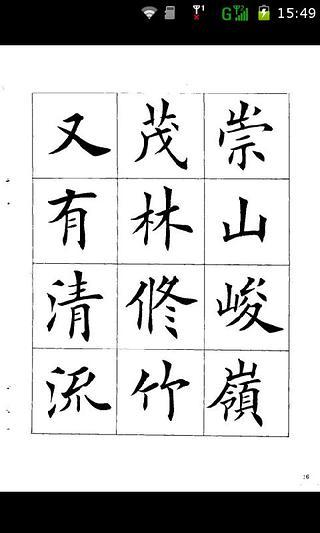 15:49
崇山峻嶺
茂林修竹
又有清流
16